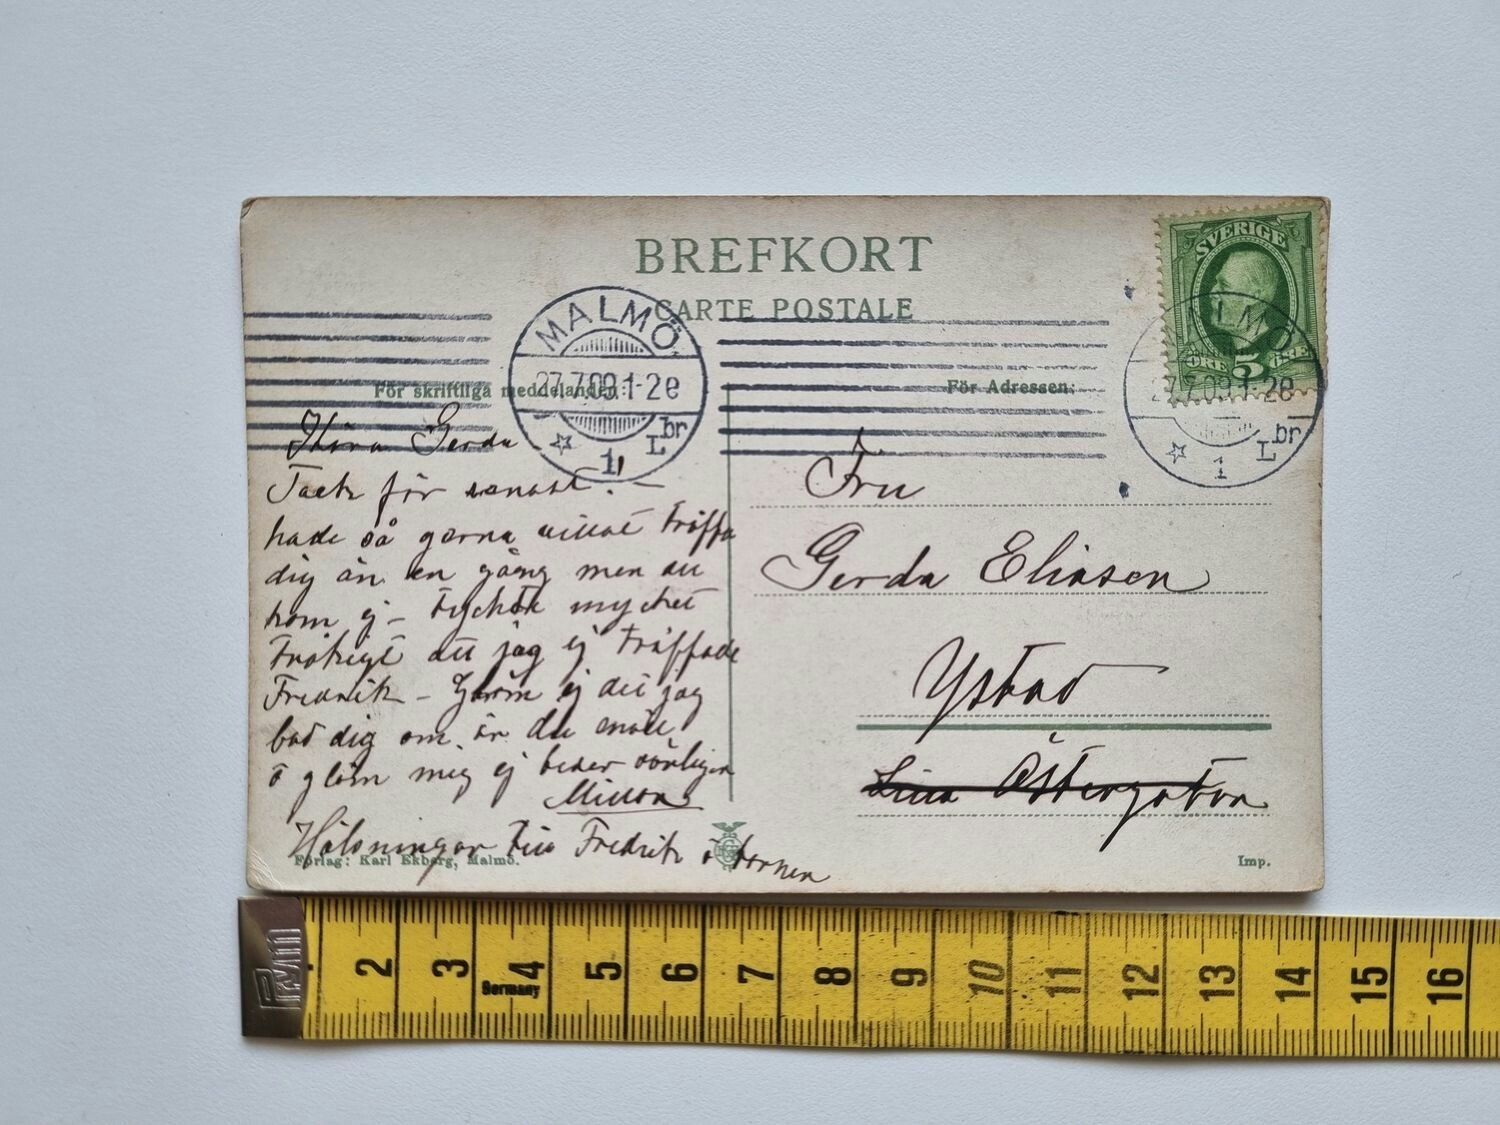 BREFKORT
CARTE POSTALE
För skriftliga meddelanden:
För Adressen:
SVERIGE
ÖRE 5 ÖRE
MALMÖ
27.7.09.1-2e
1
L br
MALMÖ
27.7.09.1-2e
1
L br
Kära Gerda
Tack för senast! —
hade så gerna villat träffa
dig än en gång men du
kom ej – tyckte mycket
tråkigt att jag ej träffade
Fredrik – Glöm ej det jag
bad dig om. är du snäll
o glöm mig ej beder
Hälsningar till Fredrik o barnen
Fru
Gerda Eliasen
Ystad
Lilla Östergatan
Förlag: Karl Ekberg, Malmö.
Imp.
2 3 4 5 6 7 8 9 10 11 12 13 14 15 16
Germany